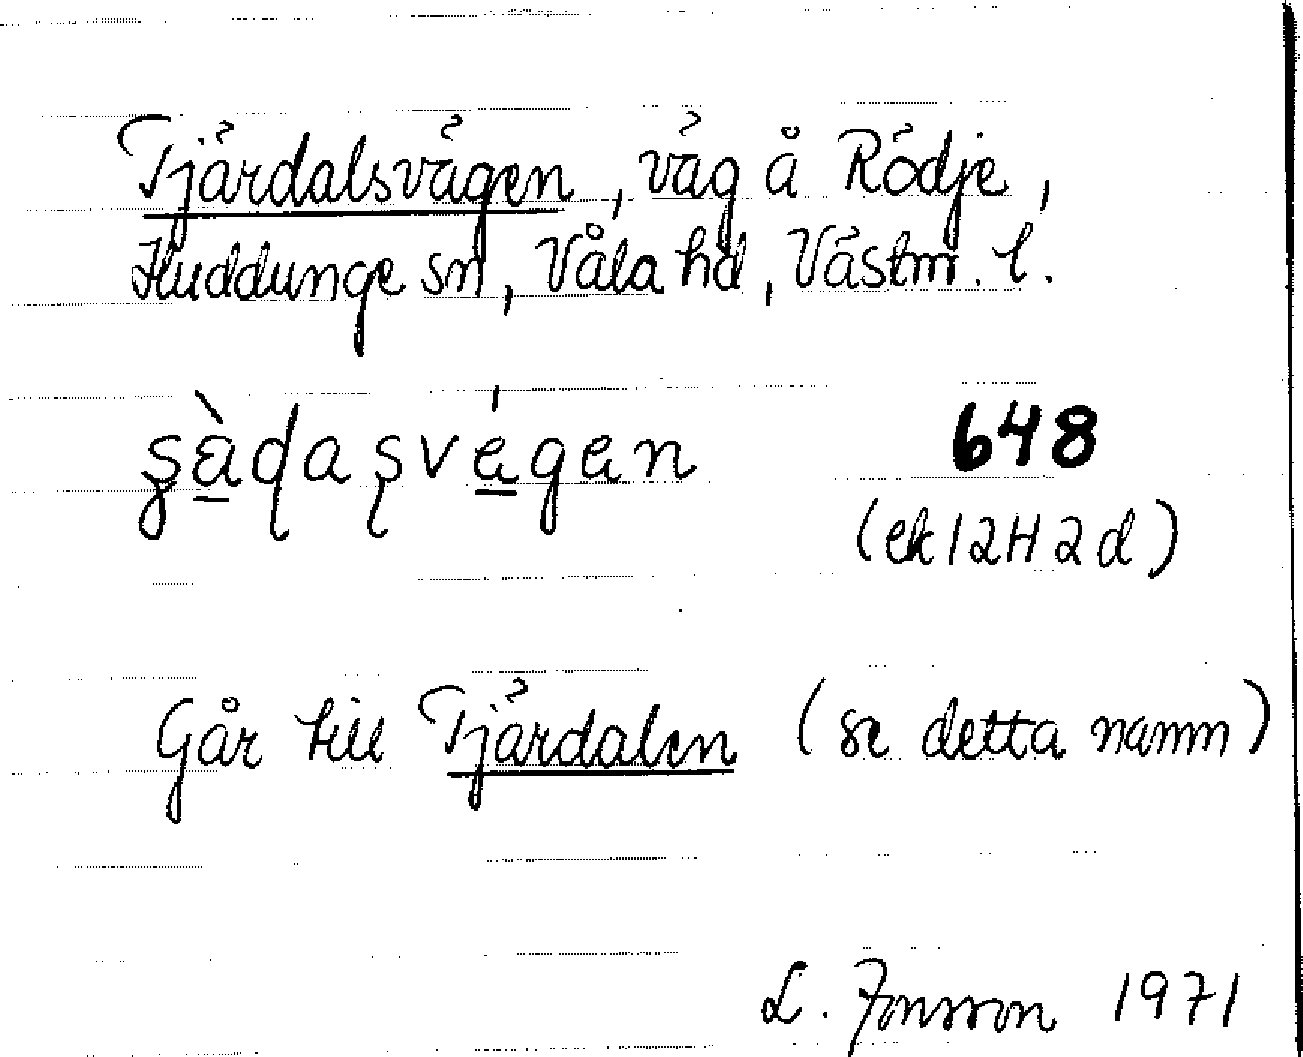 Tjärdalsvägen, väg å Rödje,
Huddunge sn, Våla hd, Västm. l.
ʂà̱ɖaʂvé̱gen 648
(ek 12H2d)
Går till Tjärdalen (se detta namn)
L. Jonsson 1971